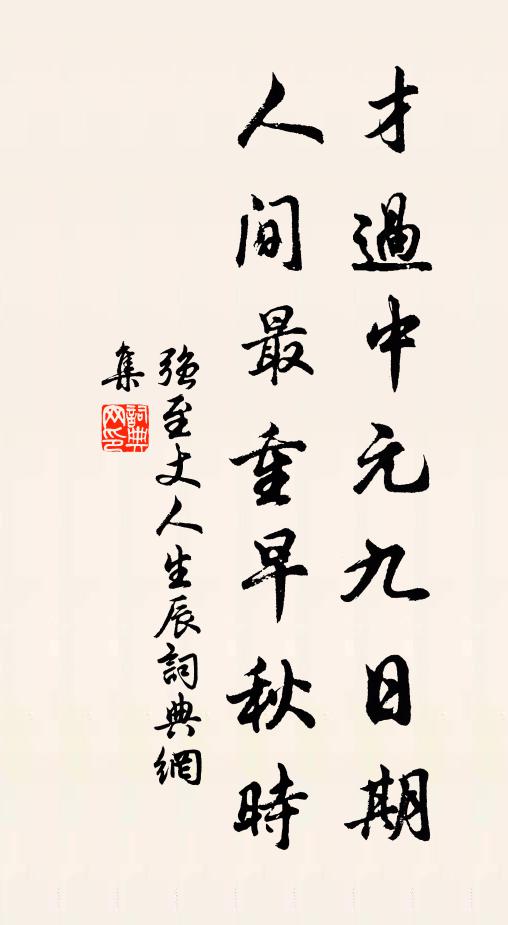 才過中元九日期
人间最重早秋時
強至丈人生辰詞典網
集
詞典
网印